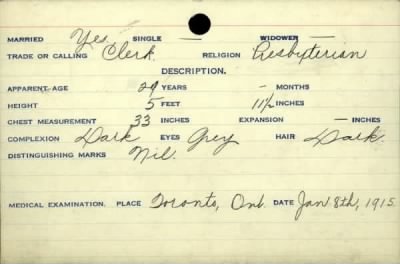 MARRIED Yes SINGLE — WIDOWER —
TRADE OR CALLING Clerk RELIGION Presbyterian
DESCRIPTION.
APPARENT AGE 29 YEARS - MONTHS
HEIGHT 5 FEET 11½ INCHES
CHEST MEASUREMENT 33 INCHES EXPANSION — INCHES
COMPLEXION Dark EYES Grey HAIR Dark.
DISTINGUISHING MARKS Nil.
MEDICAL EXAMINATION. PLACE Toronto, Ont. DATE Jan 8th, 1915.